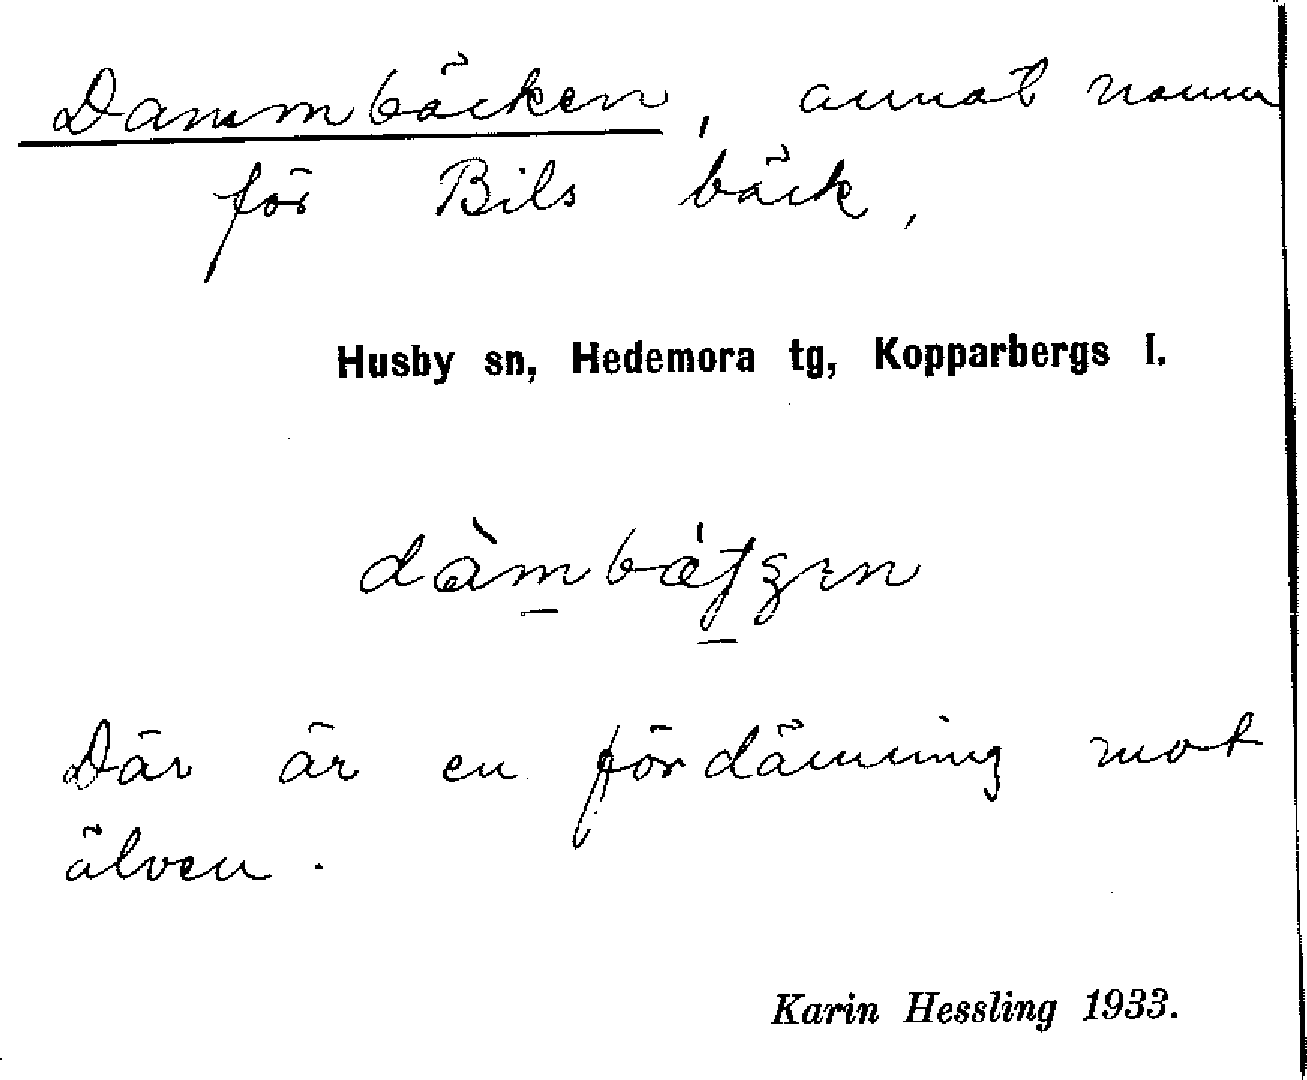 Dammbäcken, annat namn
för Bils bäck,
Husby sn, Hedemora tg, Kopparbergs l.
Där är en fördämning mot
älven.
Karin Hessling 1933.